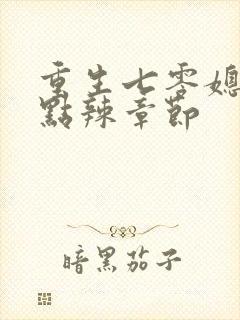 重生七零媳
點辣章節
暗黑茄子